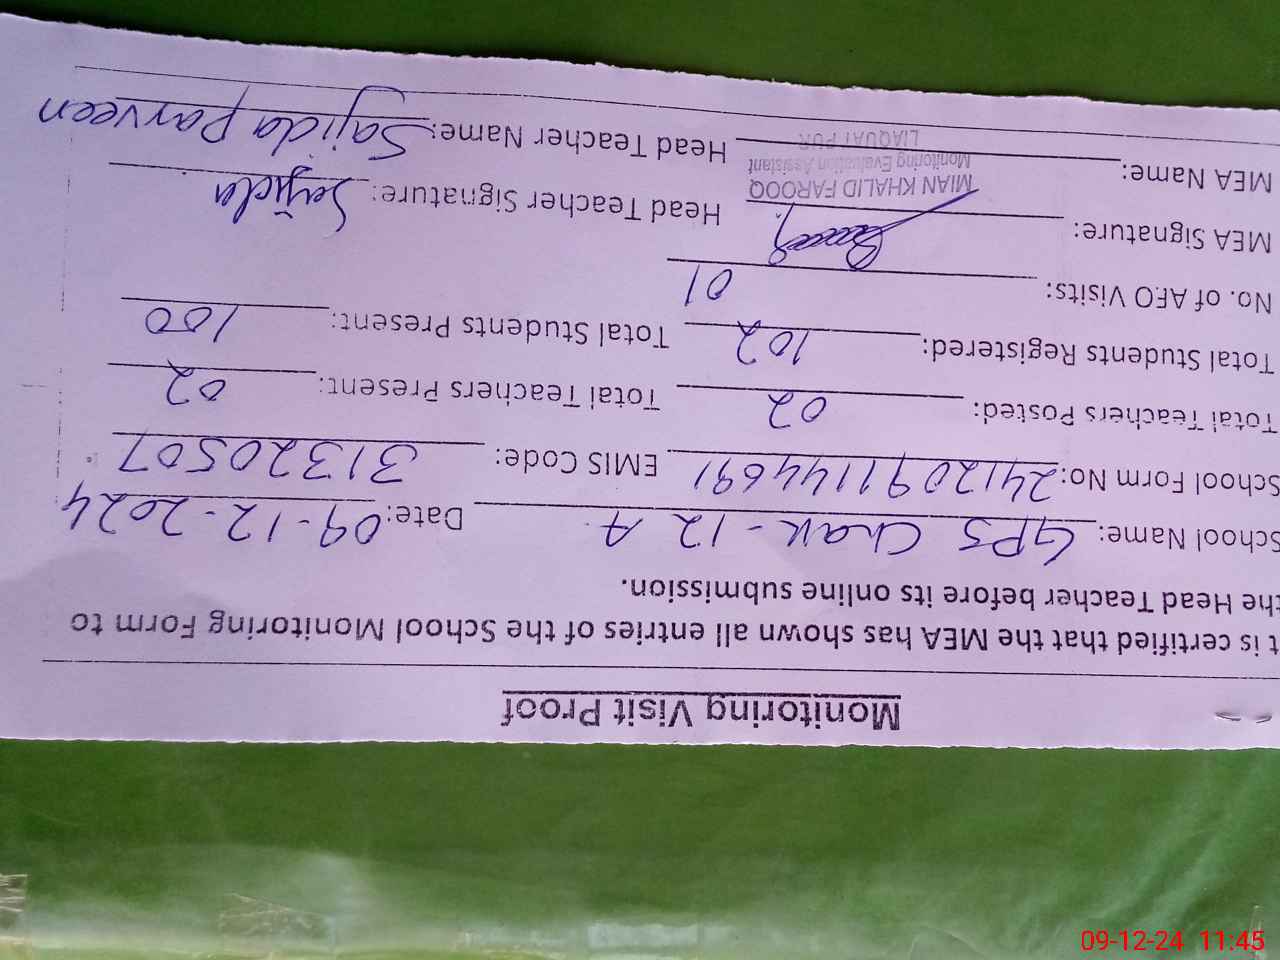 Monitoring Visit Proof
t is certified that the MEA has shown all entries of the School Monitoring Form to
the Head Teacher before its online submission.
School Name: GPS Chak - 12 A Date: 09-12-2024
School Form No: 2412091144691 EMIS Code: 31320507
Total Teachers Posted: 02 Total Teachers Present: 02
Total Students Registered: 102 Total Students Present: 100
No. of AEO Visits: 01
MEA Signature: Head Teacher Signature: Sajida
MIAN KHALID FAROOQ
Monitoring Evaluation Assistant
LIAQUAT PUR
MEA Name: Head Teacher Name: Sajida Parveen
09-12-24 11:45